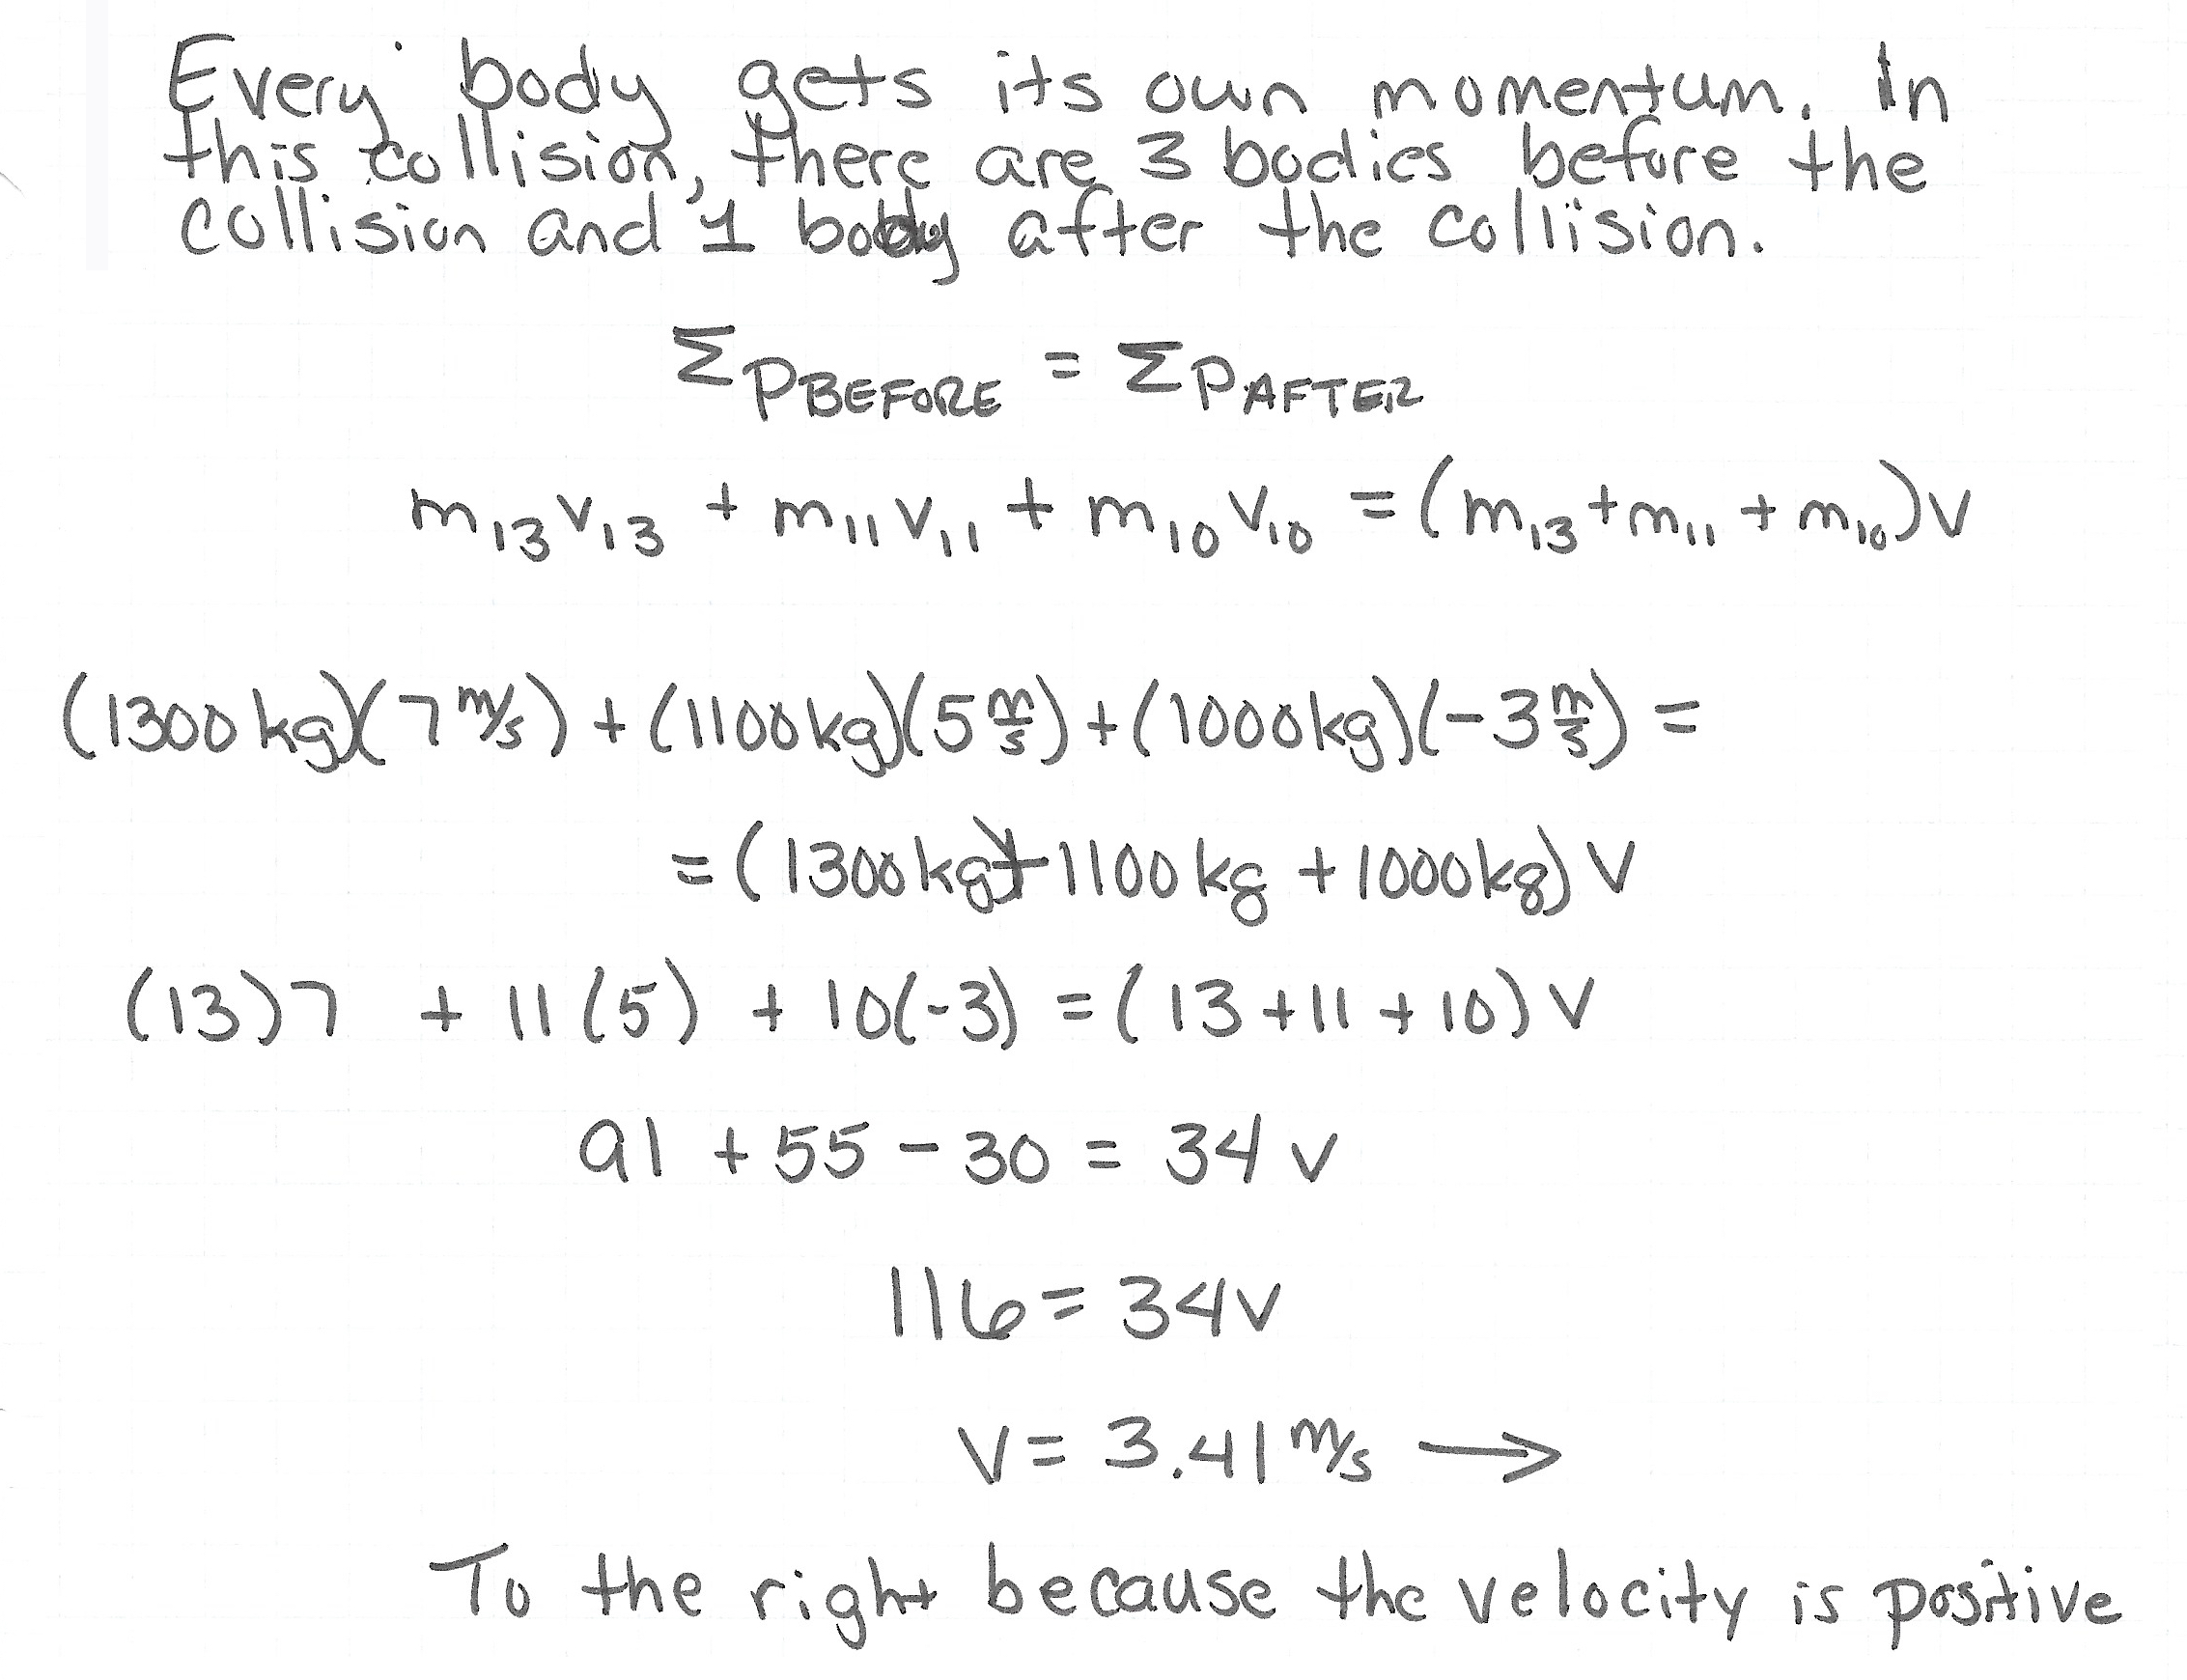 Every body gets its own momentum. In
this collision, there are 3 bodies before the
collision and 1 body after the collision.
ΣP_BEFORE = ΣP_AFTER
m₁₃v₁₃ + m₁₁v₁₁ + m₁₀v₁₀ = (m₁₃+m₁₁+m₁₀)v
(1300kg)(7 m/s) + (1100kg)(5 m/s) + (1000kg)(-3 m/s) =
= (1300kg + 1100kg + 1000kg) v
(13)7 + 11(5) + 10(-3) = (13+11+10) v
91 + 55 - 30 = 34 v
116 = 34v
v = 3.41 m/s →
To the right because the velocity is positive